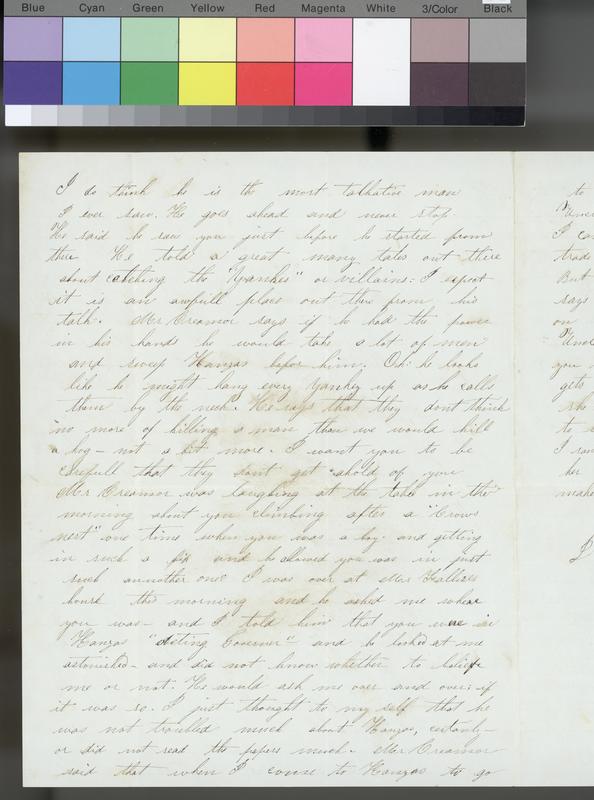 Blue Cyan Green Yellow Red Magenta White 3/Color Black
I do think he is the most talkative man
I ever saw. He goes ahead and never stop.
He said he saw you just before he started from
there He told a great many tales out there
about catching the "Yankes" or villains: I expect
it is an awfull place out there from his
talk. Mr Creamor says if he had the power
in his hands he would take a lot of men
and sweep Kanzas before him. Oh: he looks
like he might hang every Yankey up as he calls
them by the neck. He says that they dont think
no more of killing a man than we would kill
a hog — not a bit more. I want you to be
carefull that they dont get ahold of you
Mr Creamor was laughing at the table in the
morning about you climbing after a "Crows
nest" one time when you was a boy. and getting
in such a fix and he allowed you was in just
such annother one I was over at Mr
house this morning and he asked me where
you was — and I told him that you were in
Kanzas "Acting Governer" and he looked at me
astonished — and did not know whether to believe
me or not. He would ask me over and over: if
it was so. I just thought to my self that he
was not troubled much about Kanzas, certainly —
or did not read the papers much. Mr Creamor
said that when I comse to Kanzas to go
to
I
trade
But
says
on
Uncle
you
gets
she
to
I
her
make